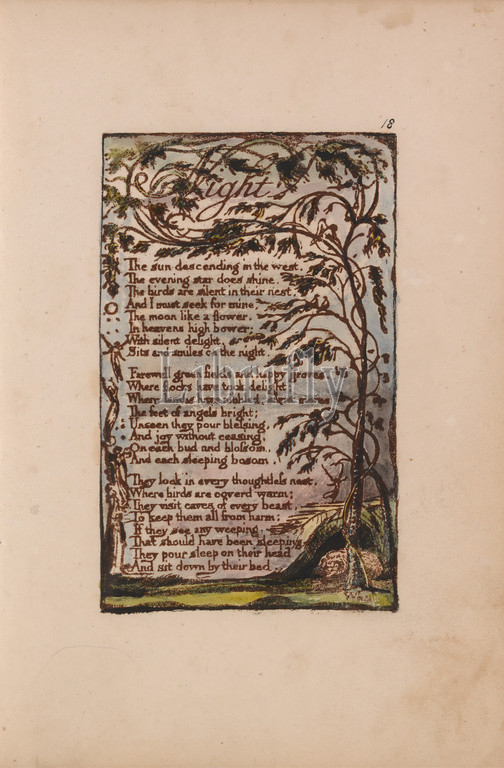 18
Night
The sun descending in the west.
The evening star does shine.
The birds are silent in their nest.
And I must seek for mine.
The moon like a flower.
In heavens high bower;
With silent delight,
Sits and smiles on the night.
Farewell green fields and happy groves,
Where flocks have took delight;
Where lambs have nibbled, silent moves
The feet of angels bright;
Unseen they pour blessing,
And joy without ceasing,
On each bud and blossom,
And each sleeping bosom.
They look in every thoughtless nest,
Where birds are coverd warm;
They visit caves of every beast,
To keep them all from harm;
If they see any weeping,
That should have been sleeping
They pour sleep on their head
And sit down by their bed.